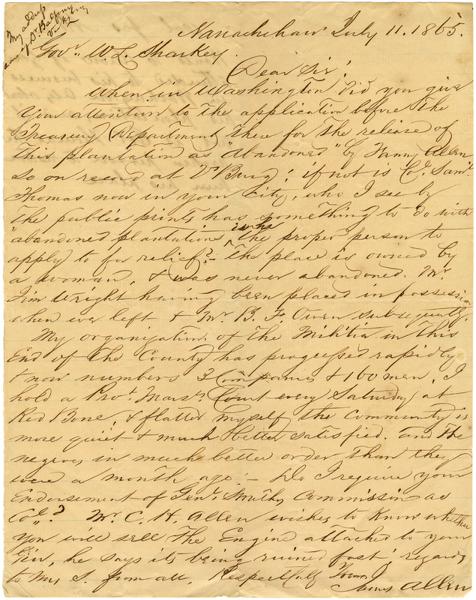 My address
care of Dr Balfour
Vbg
Nanachehaw July 11. 1865.
Govr. W L Sharkey.
Dear Sir!
When in Washington did you give
your attention to the application before the
Treasury Department there for the release of
this plantation as "Abandoned" by Fanny Allen
so on record at V'Burg: if not is Col. Saml
Thomas now in your City, who I see by
the public prints has something to do with
"abandoned plantations" the proper person to
apply to for relief? — the place is owned by
a woman, & was never abandoned. Mr.
Jim Wright having been placed in possession
when we left & Mr B. F. Owen subsequently.
My organization of the Militia in this
End of the County has progressed rapidly
& now numbers 3 Companies & 160 men. I
hold a Pro. Mars Court every Saturday at
Red Bone, & flatter myself the Community is
more quiet & much better satisfied, and the
negroes in much better order than they
were a month ago: — Do I require your
Endorsement of Genl Smiths Commission as
Col.? Mr. C. H. Allen wishes to know whether
you will sell the Engine attached to your
Gin, he says its being ruined fast. regards
to Mrs S. from all. Respectfully Yours
James Allen